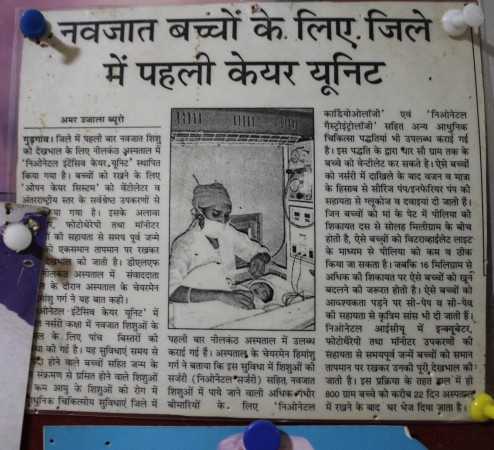 नवजात बच्चों के लिए जिले
में पहली केयर यूनिट
अमर उजाला ब्यूरो
गुड़गांव। जिले में पहली बार नवजात शिशु
की देखभाल के लिए नीलकंठ अस्पताल में
'निओनेटल इंटेंसिव केयर यूनिट' स्थापित
किया गया है। बच्चों को रखने के लिए
'ओपन केयर सिस्टम' को वेंटीलेटर व
अंतरराष्ट्रीय स्तर के सर्वश्रेष्ठ उपकरणों से
गया है। इसके अलावा
फोटोथेरेपी तथा मॉनीटर
की सहायता से समय पूर्व जन्मे
को एकसमान तापमान पर रखकर
की जाती है। डीएलएफ
अस्पताल में संवाददाता
के दौरान अस्पताल के चेयरमेन
गर्ग ने यह बात कही।
इंटेंसिव केयर यूनिट' में
नर्सरी कक्षा में नवजात शिशुओं के
के लिए पांच बिस्तरों की
की गई है। यह सुविधाएं समय से
होने वाले बच्चों सहित जन्म के
संक्रमण से ग्रसित होने वाले शिशुओं
कम आयु के शिशुओं को रोग में
चिकित्सीय सुविधाएं जिले में
पहली बार नीलकंठ अस्पताल में उलब्ध
कराई गई हैं। अस्पताल के चेयरमेन हिमांशु
गर्ग ने बताया कि इस सुविधा में शिशुओं की
सर्जरी (निओनेटल सर्जरी) सहित नवजात
शिशुओं में पाये जाने वाली अधिक गंभीर
बीमारियों के लिए 'निओनेटल
कार्डियोओलॉजी' एवं 'निओनेटल
गैस्ट्रोइंट्रोलॉजी' सहित अन्य आधुनिक
चिकित्सा पद्धतियां भी उपलब्ध कराई गई
है। इस पद्धति के द्वारा चार सौ ग्राम तक के
बच्चे को वेन्टीलेट कर सकते है। ऐसे बच्चों
को नर्सरी में दाखिले के बाद वजन व मात्रा
के हिसाब से सीरिज पंप/इनफेरियर पंप की
सहायता से ग्लूकोज व दवाइयां दी जाती हैं।
जिन बच्चों को मां के पेट में पीलिया की
शिकायत दस से सोलह मिलीग्राम के बीच
होती है, ऐसे बच्चों को लाइट
के माध्यम से पीलिया को कम व ठीक
किया जा सकता है। जबकि 16 मिलिग्राम से
अधिक की शिकायत पर ऐसे बच्चों को खून
बदलने की जरूरत होती है। ऐसे बच्चों को
आवश्यकता पड़ने पर सी-पैप व
की सहायता से कृत्रिम सांस भी दी जाती हैं।
निओनेटल आईसीयू में इन्क्यूबेटर,
फोटोथेरेपी तथा मॉनीटर उपकरणों की
सहायता से समयपूर्व जन्मे बच्चों को समान
तापमान पर रखकर उनकी पूरी देखभाल की
जाती है। इस प्रक्रिया के तहत हाल में ही
800 ग्राम बच्चे को करीब 22 दिन अस्पताल
में रखने के बाद घर भेज दिया जाता है।